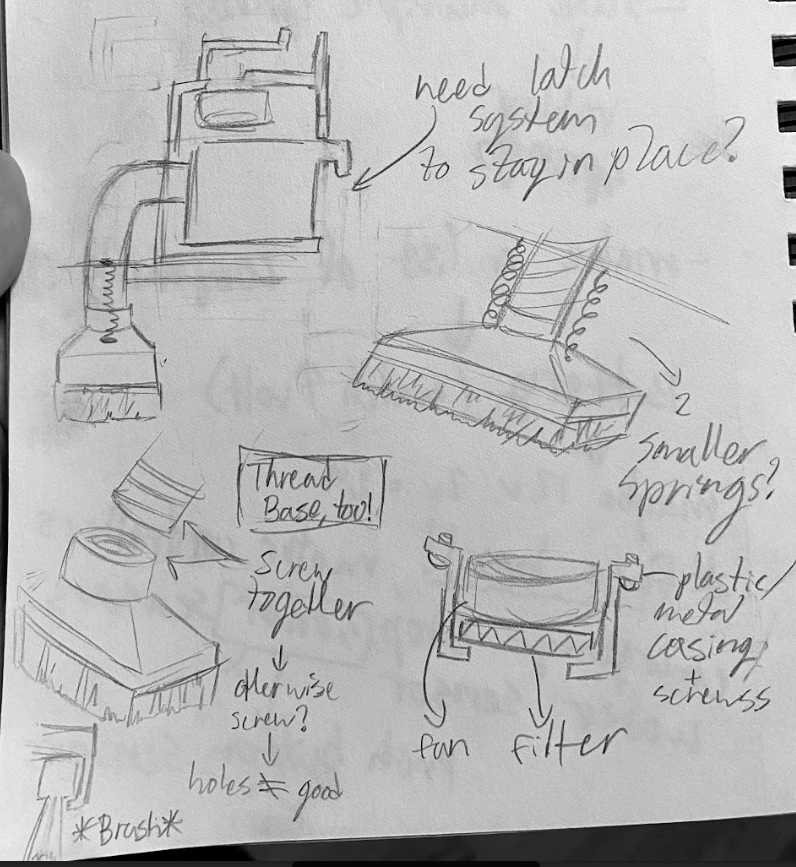 need latch
system
to stay in place?
2
smaller
springs?
Thread
Base, too!
Screw
together
otherwise
screw?
holes ≠ good
plastic/
metal
casing
+
screwss
fan
filter
*Brush*